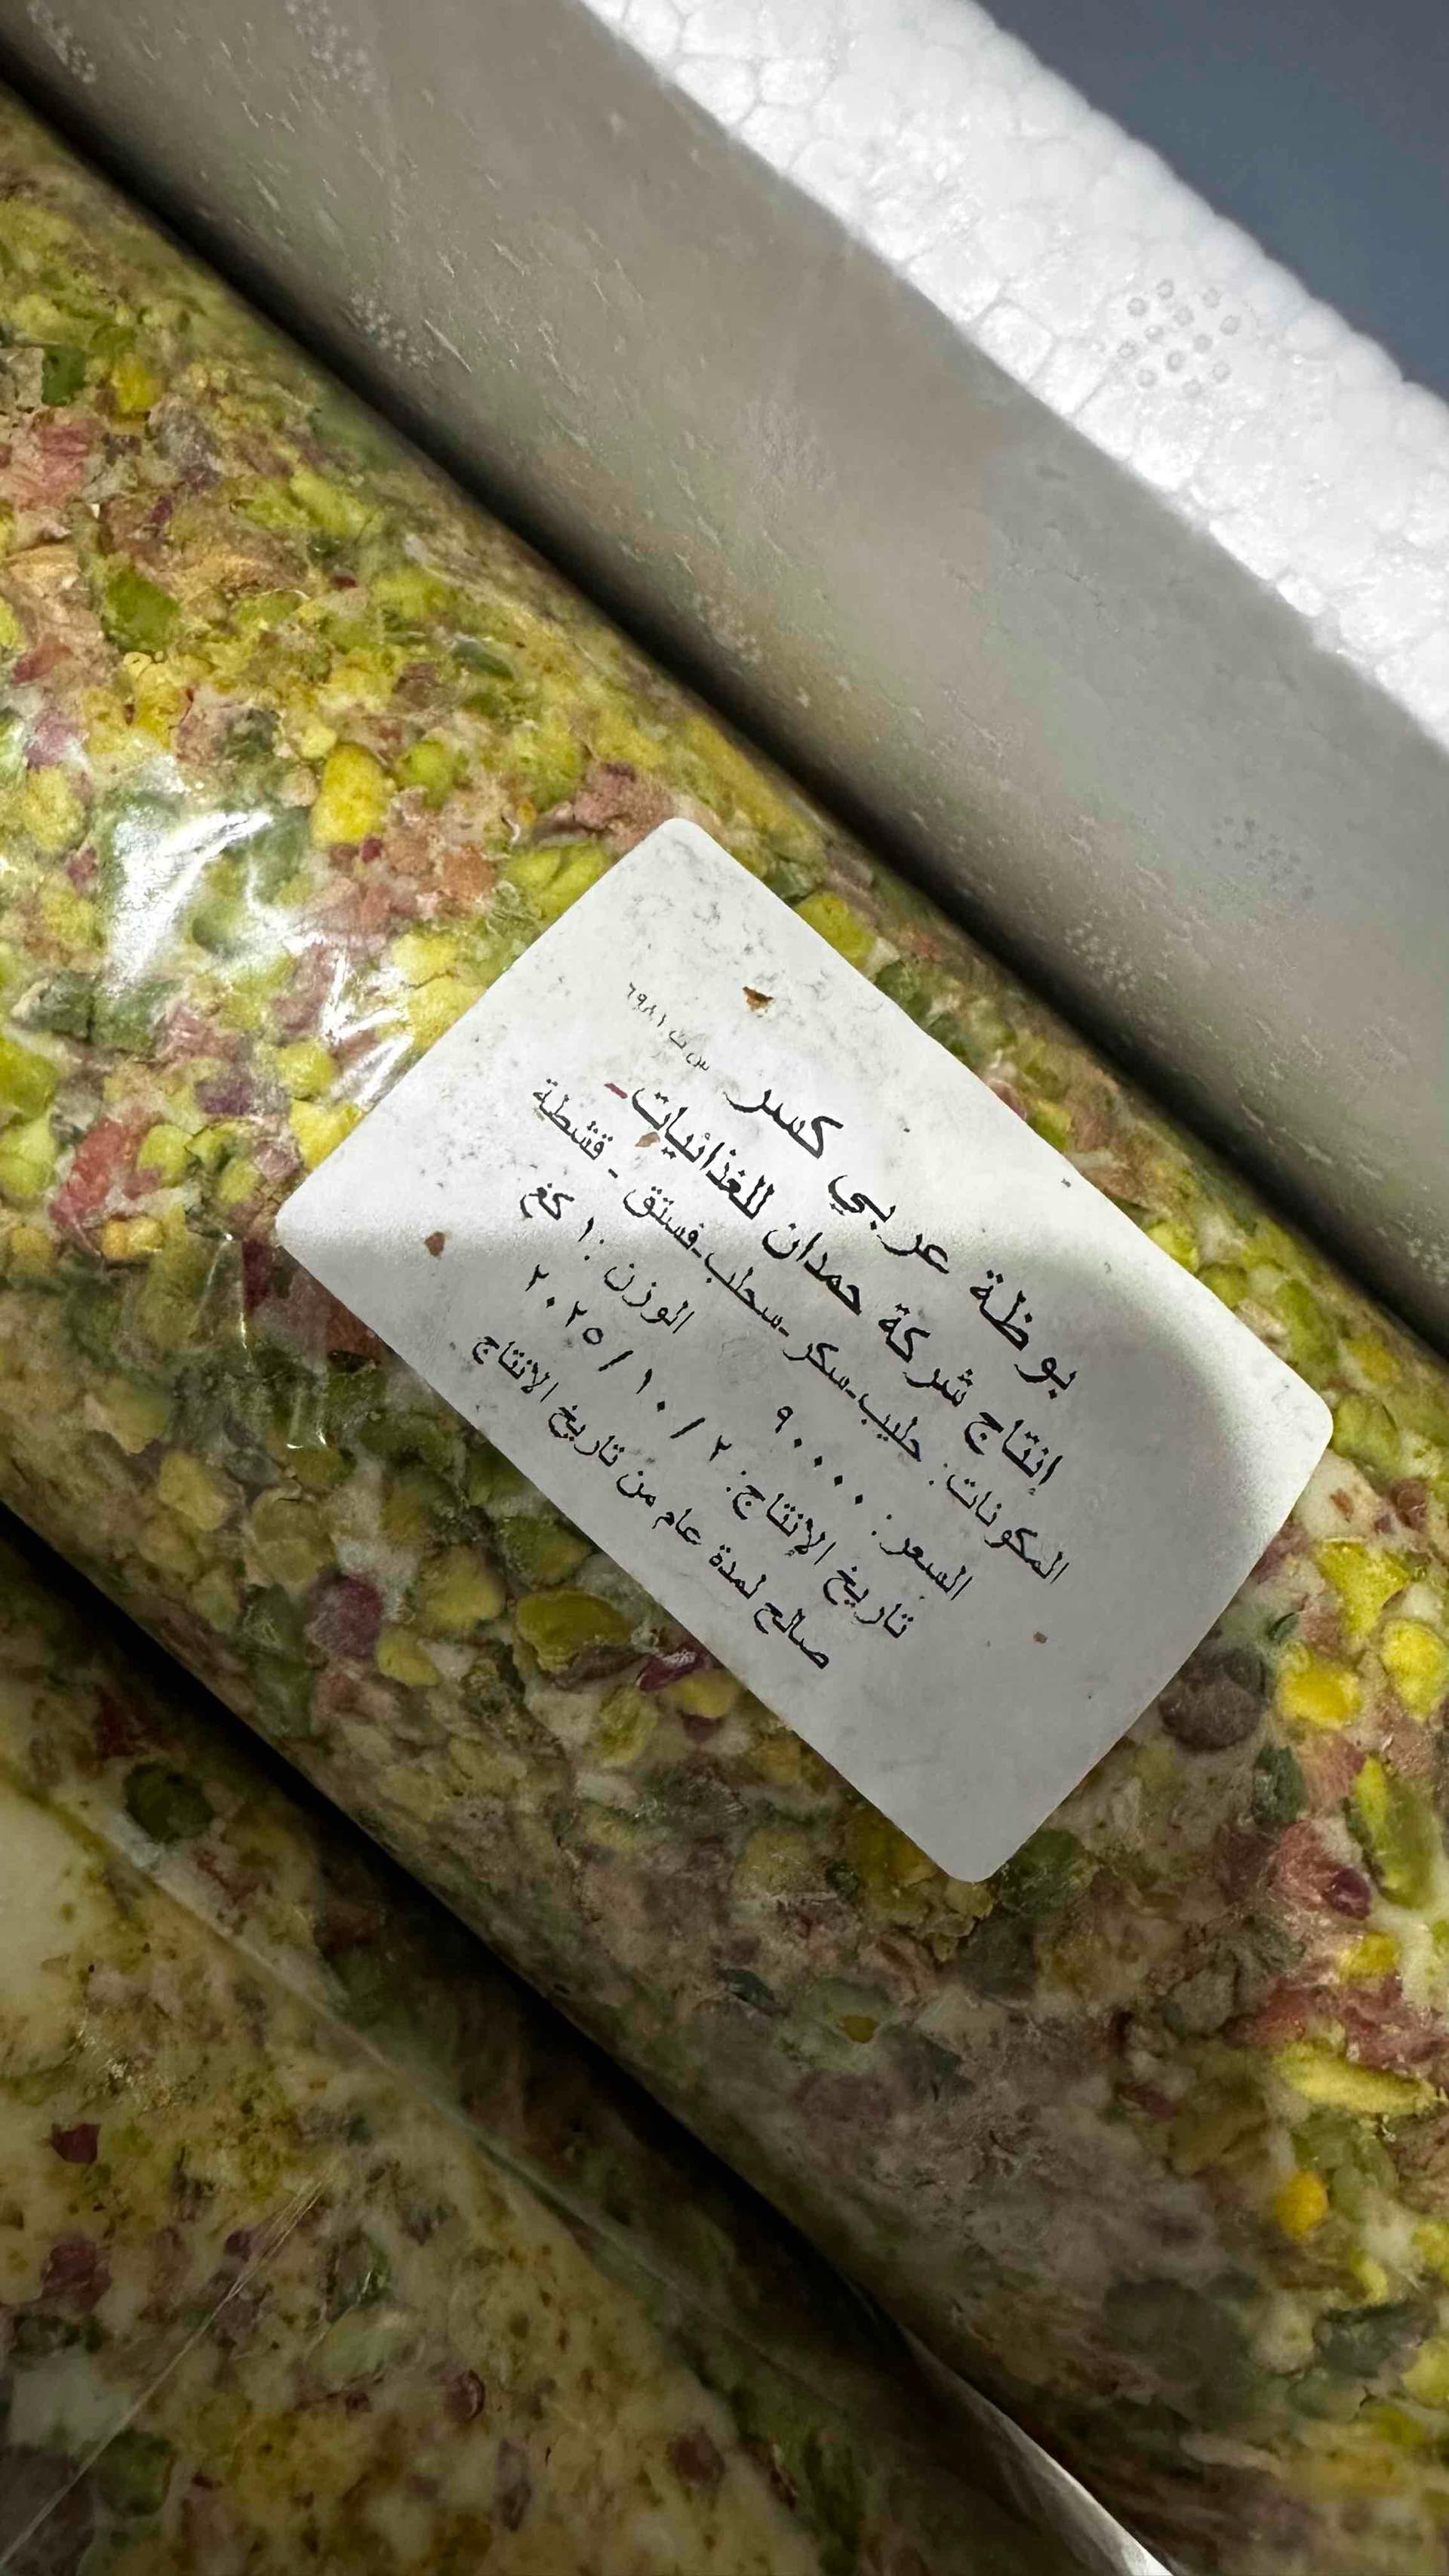 بوظة عربي كسر س ت ٦٩٨١
إنتاج شركة حمدان للغذائيات-
المكونات: حليب-سكر-سحلب-فستق - قشطة
السعر: ٩٠٠٠٠ الوزن: ١ كغ
تاريخ الإنتاج: ٢ / ١٠ / ٢٠٢٥
صالح لمدة عام من تاريخ الانتاج